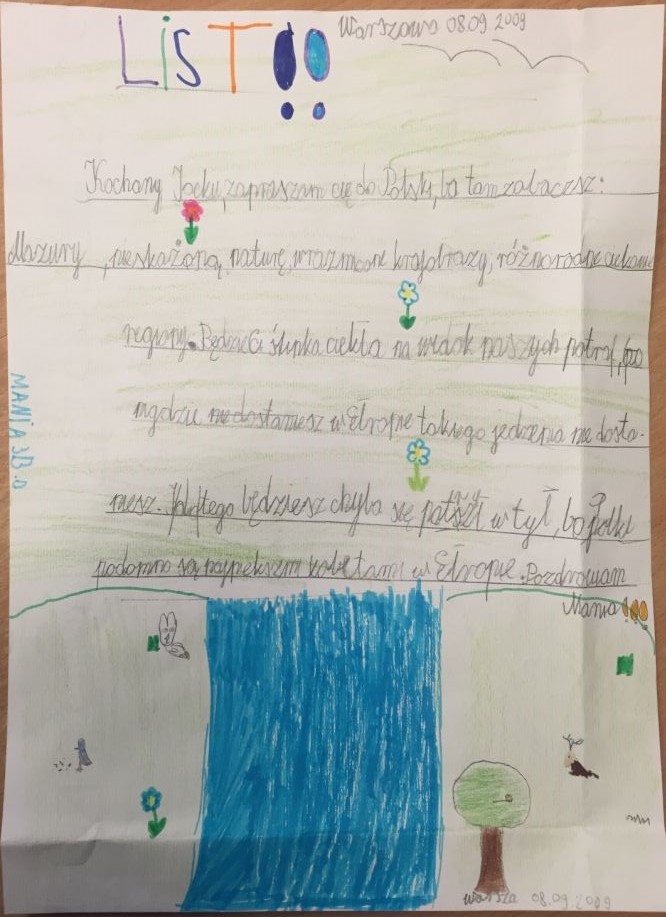 LiST!!
Warszawa 08.09 2009
Kochany Jacku, zapraszam cię do Polski, bo tam zobaczysz:
Mazury, nieskażoną naturę, krajobrazy, różnorodne ciekawe
regiony. Będzie Ci ślinka ciekła na widok naszych potraf, bo
nigdzie niedostaniesz wEłropie takiego jedzenia nie dosta-
niesz. będziesz chyba się patszył w tył, bo polki
podomno są kobietami w Ełropie. Pozdrawiam
Mania!!!
MANiA 3B.
08.09.2009